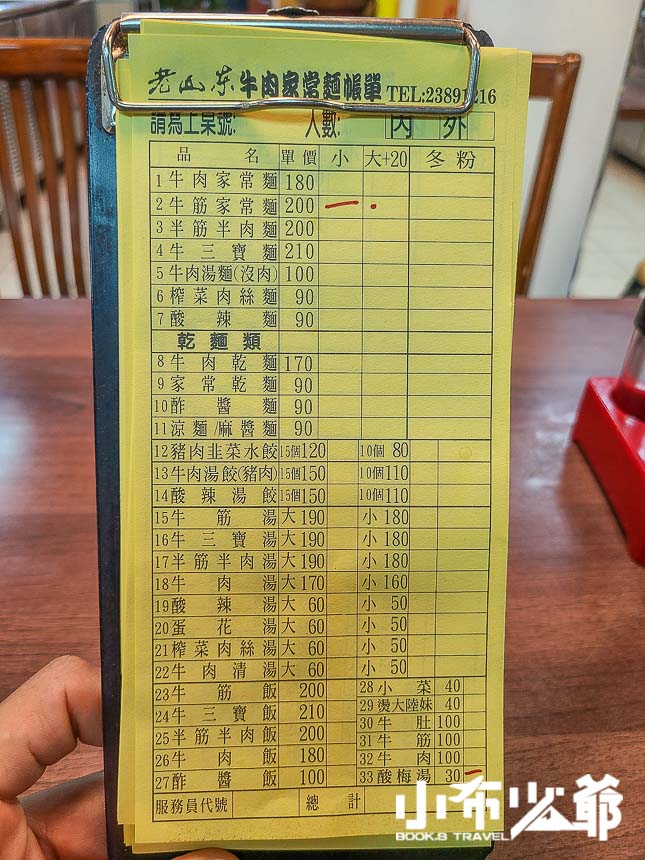 老山东牛肉家常麵帳單 TEL:23891216
請為上桌號: 人數: 內 外
品名 單價 小 大+20 冬粉
1 牛肉家常麵 180
2 牛筋家常麵 200
3 半筋半肉麵 200
4 牛三寶麵 210
5 牛肉湯麵(沒肉) 100
6 榨菜肉絲麵 90
7 酸辣麵 90
乾麵類
8 牛肉乾麵 170
9 家常乾麵 90
10 酢醬麵 90
11 涼麵/麻醬麵 90
12 豬肉韭菜水餃 15個 120 10個 80
13 牛肉湯餃(豬肉) 15個 150 10個 110
14 酸辣湯餃 15個 150 10個 110
15 牛筋湯 大 190 小 180
16 牛三寶湯 大 190 小 180
17 半筋半肉湯 大 190 小 180
18 牛肉湯 大 170 小 160
19 酸辣湯 大 60 小 50
20 蛋花湯 大 60 小 50
21 榨菜肉絲湯 大 60 小 50
22 牛肉清湯 大 60 小 50
23 牛筋飯 200
24 牛三寶飯 210
25 半筋半肉飯 200
26 牛肉飯 180
27 酢醬飯 100
28 小菜 40
29 燙大陸妹 40
30 牛肚 100
31 牛筋 100
32 牛肉 100
33 酸梅湯 30
服務員代號 總計
小布少爺
BOOK.S TRAVEL